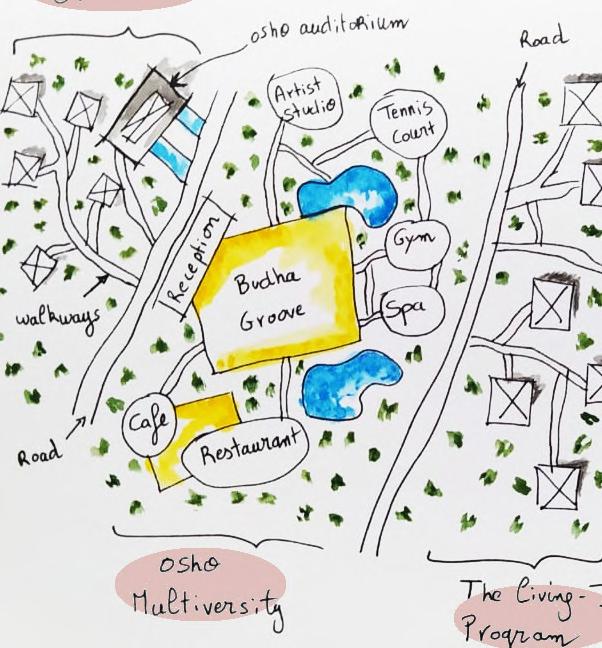 Osho auditorium
Road
Artist
Studio
Tennis
Court
Reception
Gym
Budha
Groove
Spa
walkways
Cafe
Restaurant
Road
Osho
Multiversity
The Living-
Program